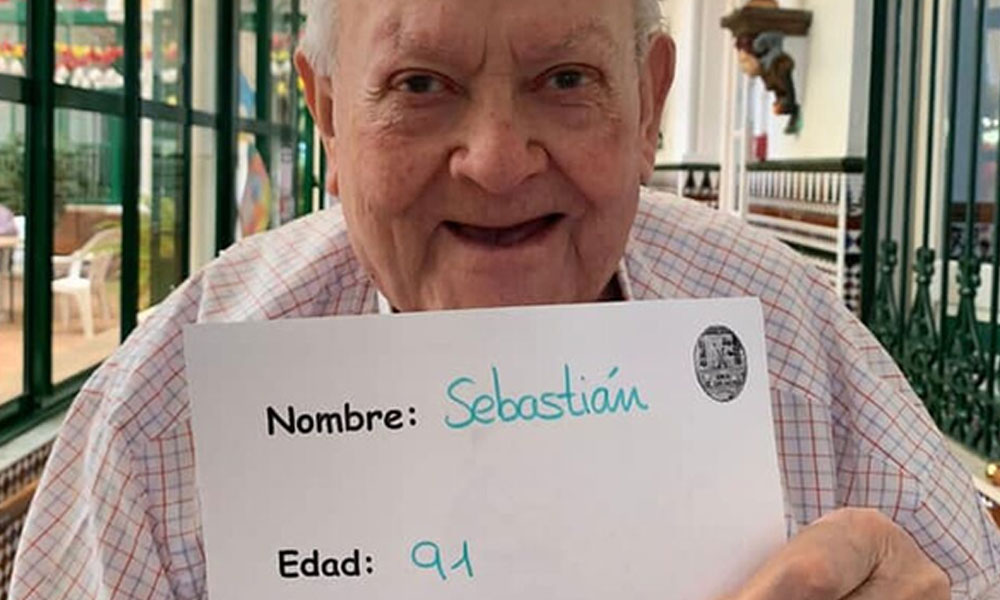 Nombre: Sebastián
Edad: 91